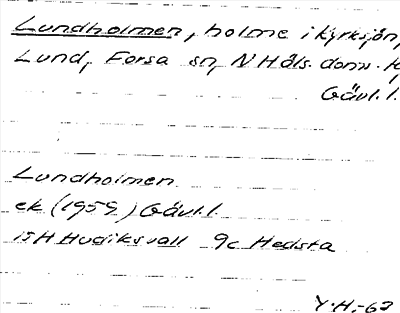 Lundholmen, holme i Kyrksjön,
Lund, Forsa sn, N Häls. domn.
Gävl. l.
Lundholmen
ek (1959) Gävl. l.
15H Hudiksvall 9c Hedsta
Y.H.-62